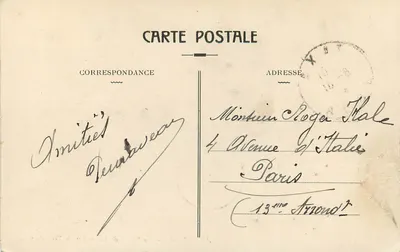 CARTE POSTALE
CORRESPONDANCE
ADRESSE
Amitiés
Monsieur Roger Kale
4 Avenue d'Italie
Paris
(13me Arrondt